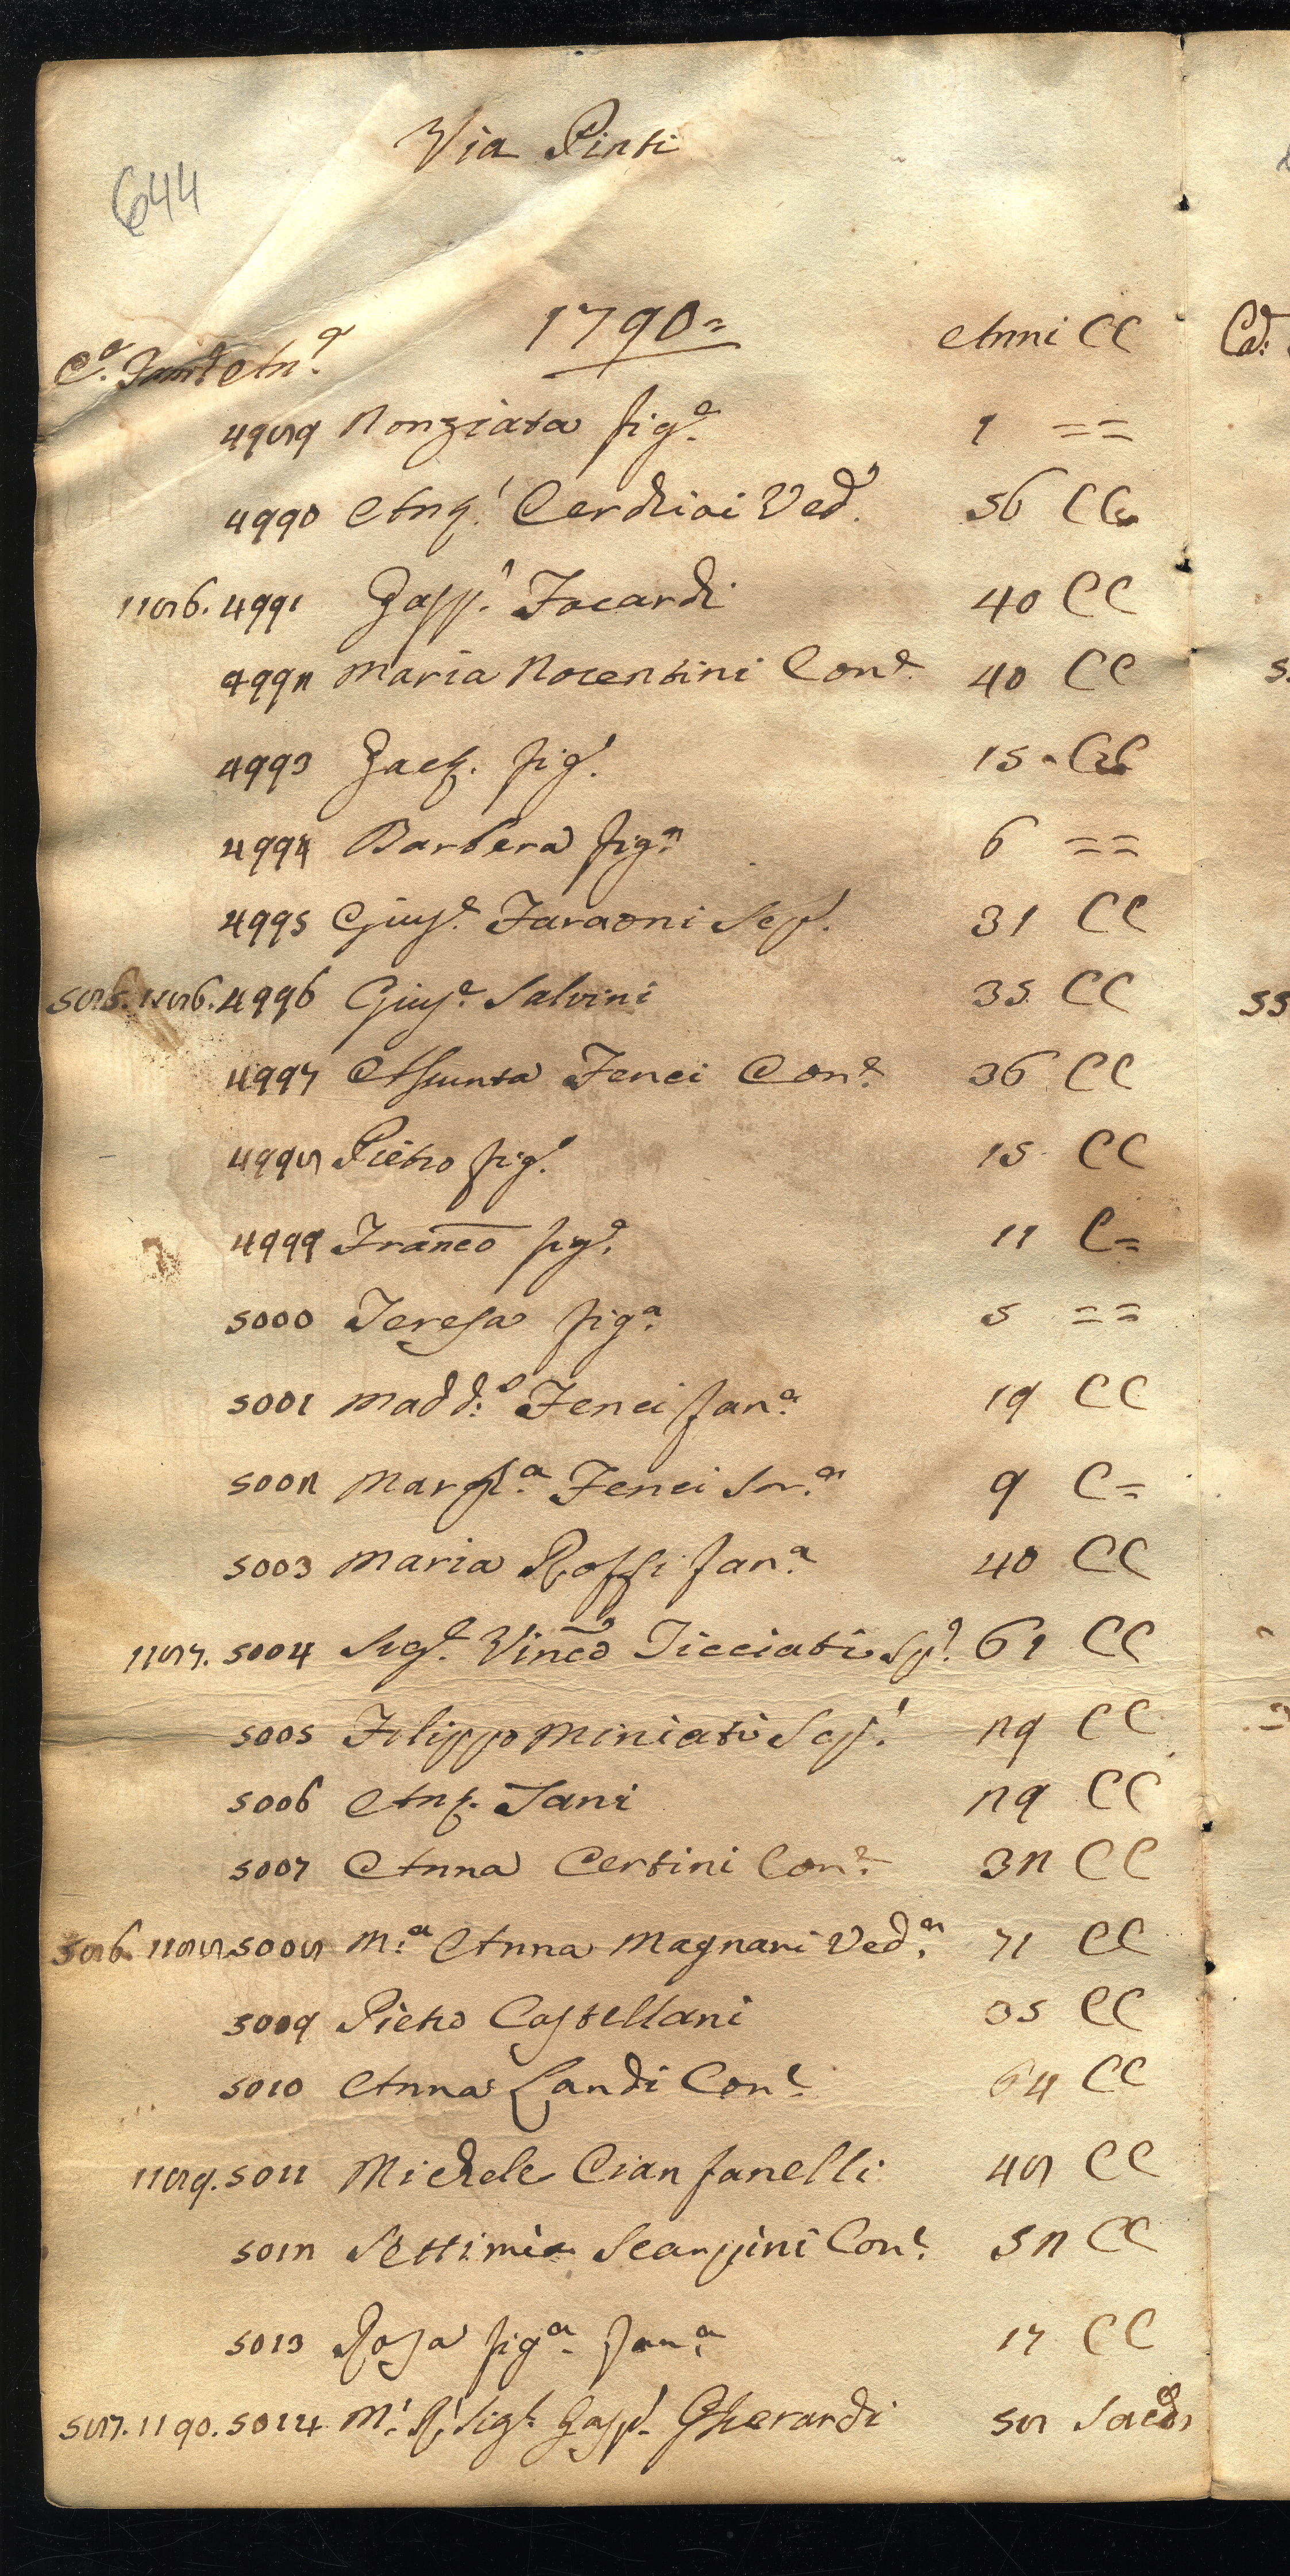 Via Pinti
644
1790=
C.ᵉ Fam.ᵉ An.ᵉ Anni CC
4989 Nonziata fig.ᵃ 1 ==
4990 Ang.ˡ Cerchiai Ved.ᵃ 56 CC
1186. 4991 Gasp.ʳ Focardi 40 CC
4992 Maria Nocentini Con.ᵉ 40 CC
4993 Gaet. fig.º 15 - CC
4994 Barbera fig.ᵃ 6 ==
4995 Gius.ᵉ Faraoni Sep.º 31 CC
585. 1186. 4996 Gius.ᵉ Salvini 35 CC
4997 Assunta Fenci Con.ᵉ 36 CC
4998 Pietro fig.º 15 CC
4999 Franco fig.º 11 C=
5000 Teresa fig.ᵃ 5 ==
5001 Madd.ᵃ Fenci fan.ᵃ 19 CC
5002 Marg.ᵗᵃ Fenci Sor.ᵃ 9 C=
5003 Maria Rossi fan.ᵃ 40 CC
1187. 5004 Sig.ᵉ Vinco Ticciati Sp.º 61 CC
5005 Filippo Miniati Sep.º 29 CC
5006 Ant. Tani 29 CC
5007 Anna Certini Con.ᵉ 32 CC
586. 1188. 5008 M.ᵃ Anna Magnani Ved.ᵃ 71 CC
5009 Pietro Castellani 35 CC
5010 Anna Landi Con.ᵉ 64 CC
1189. 5011 Michele Cianfanelli 48 CC
5012 Settimia Scarpini Con.ᵉ 52 CC
5013 Rosa fig.ᵃ fan.ᵃ 17 CC
587. 1190. 5014 M.º R.º Sig.ʳ Gasp.º Gherardi 58 Sacer